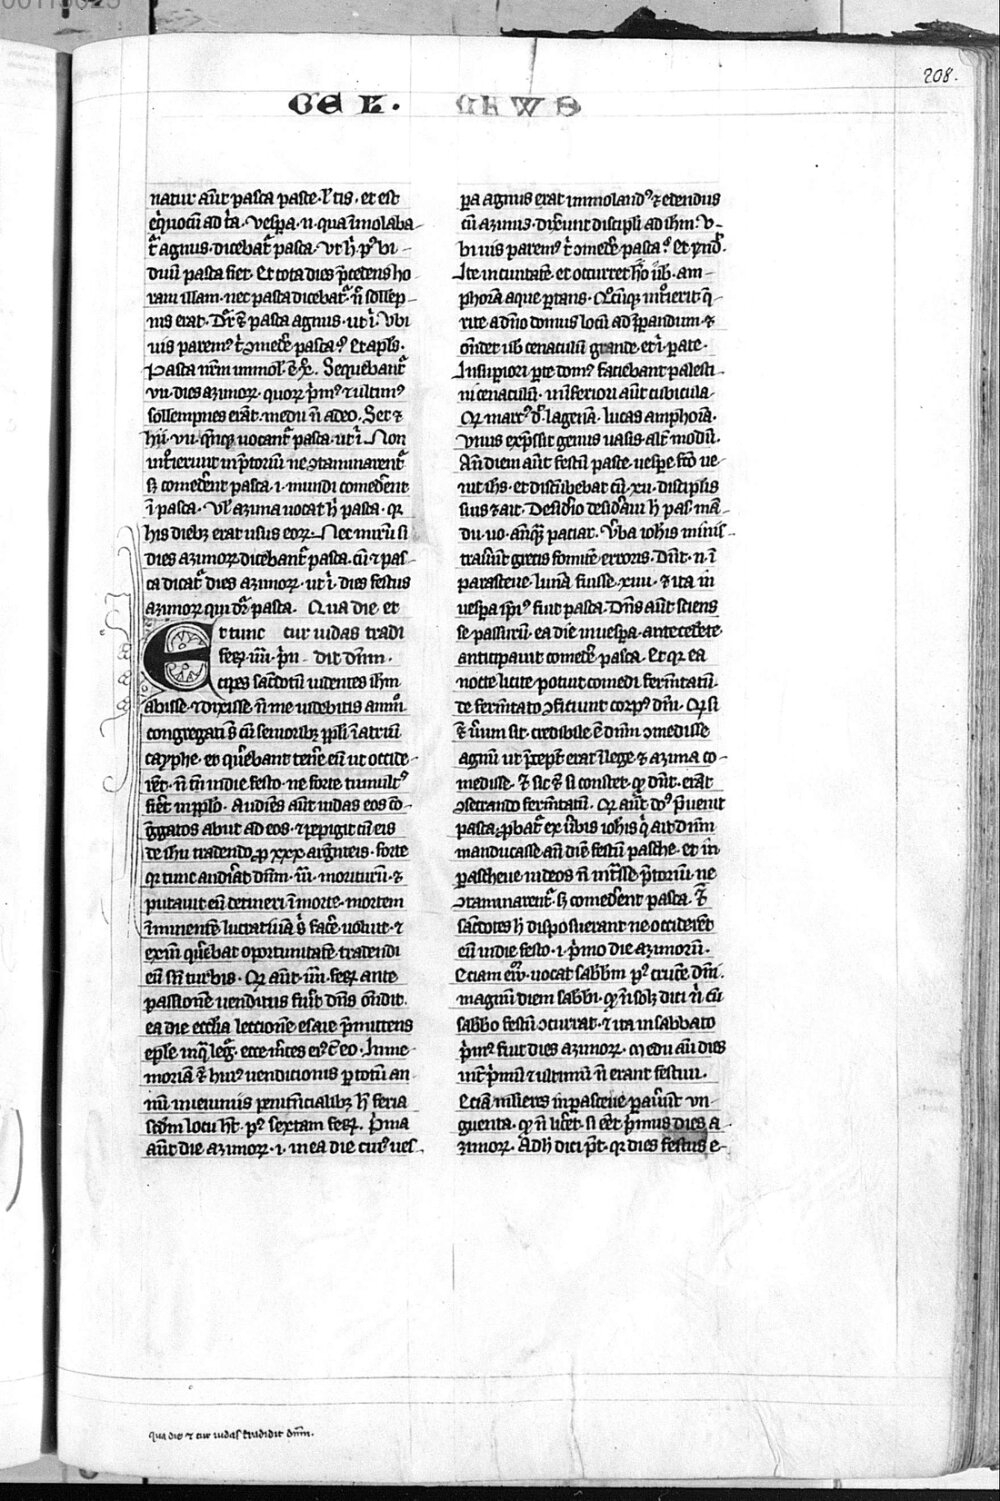 208.
natur aut pasca pasce. l'tis. et est
eqͥuocū ad tͥa. Vespa. n. qua īmolaba-
tͬ agnus. dicebatͬ pasca. Vt hͥ. p9 bi-
duū pasca fiet. Et tota dies p̄cedens ho
ram illam. nec pasca dicebatͬ. n̄ sollep-
nis erat. Dr̄ ⁊ pasca agnus. ut i. Vbi
uis parem9 tͥ ꝯmedͤe pasca. Et apl̄s.
Pasca nrm̄ immol. ē xc. Sequebantͬ
vii. dies azimoꝝ. quoꝝ pͥm9 ⁊ ultim9
sollempnes erāt. medii n̄ adeo. Set ⁊
hii. vii. qn̄cꝫ uocantͬ pasca. ut i. Non
intͦierunt in p̄toriū ne ꝯtaminarentͬ
sꝫ comedͤent pasca. i. mundi comedͤent
ī pasca. Vl' azima uocat hͥ pasca. qꝛ
his diebꝫ erat usus eoꝝ. Nec mirū si
dies azimoꝝ dicebantͬ pasca. cū ⁊ pas-
ca dicatͬ dies azimoꝝ. ut i. dies festus
azimoꝝ qui dr̄ pasca. Qua die et
Et tunc cur iudas tradi
feꝝ. iiii. pͥn- dit dn̄m.
cipes sacͤdotū uidentes ihm
abisse. ⁊ dixisse. n̄ me uidebitis amͦ.
congregati s̄ cū senioribꝫ ppl̄i ī atriū
cayphe. et qͤrebant tenͤe eū ut occide
rēt. n̄ tn̄ in die festo. ne forte tumult9
fieͤt in pplo. Audiēs aūt iudas eos cō-
gͤgatos abiit ad eos. ⁊ pepigit cū eis
de ihu tradendo. ꝓ xxx argͤnteis. forte
qꝛ tunc audiͤat dn̄m. iii. moriturū. ⁊
putauit eū detineri ī morte. mortem
īminentē lucratiuā sͥ facͤe uoluit. ⁊
exin qͤrebat oportunitatē tradendi
eū sn̄ turbis. Qꝛ aūt. iiii. feꝝ ante
passionē uenditus fuͤit dn̄s ōndit.
ea die ecclīa lectionē esaie p̄mittens
eple. in q̄ legͬ. ecce mͤces ei9 cͫ eo. In me-
moriā ⁊ hui9 uendicionis ꝑ totū an-
nū in ieiuniis penitn̄cialibꝫ hͥ feria
scd̄m locū ht̄. p9 sextam feꝝ. Pͥma
aūt die azimoꝝ. i. in ea die cui9 ues-
pa agnus erat immoland9 ⁊ edendus
cū azimis. dixerūt discipli ad ihm. V-
bi uis parem9 tͥ ꝯmedͤe pasca? Et rn̄d.
Ite in ciuitatē. et occurret hō uͦb. am-
phorā aque portans. Qͦcūqꝫ intͦierit q̄
rite a dn̄o domus locū ad p̄parandum. ⁊
ōndet uͦb cenaculū grande. et i. parate.
In supͤiori pte dom9 faciebant palesti-
ni cenaculū. in infͤiori aūt cubicula.
Qꝛ marc9 dͥ. lagenā. lucas amphorā.
Vnus exp̄ssit genus uasis. altͤ modū.
Añ diem aūt festū pasce. uespe. fcō ue-
nit ihs. et discūbebat cū. xii. discipl̄is
suis ⁊ ait. Desidͤio desidͤaui hͦ pas. mā-
du. uo. añqͣ paciar. Vͤba iohis minis-
trauͤnt grecis fomitē erroris. Dn̄t. n. ī
parasceue. lunā fuisse. xiiii. ⁊ ita in
uespa ipi9 fuit pasca. Dn̄s aūt sciens
se passurū. ea die in uespa. antecedente
anticipauit comedͤe pasca. Et qꝛ ea
nocte licite potuit comedi fermtatū.
de fermtato ꝯficiunt corp9 dn̄i. Qꝛ si
⁊ uͤum sit. credibile ē dn̄m ꝯmedisse
agnū ut p̄cept̄ erat ī lege. ⁊ azima co-
medisse. ⁊ sic ⁊ si constet. qͦ dn̄t. erāt
ꝯsecrando fermtatū. Qꝛ aūt do9 p̄uenit
pasca. ꝓbatͬ ex uͤbis iohis qͥ ait dn̄m
manducasse añ diē festū pasche. et in
pasceue iudeos n̄ intͣsse p̄toriū. ne
ꝯtaminarentͬ. sꝫ comedͤent pasca. ⁊
sacͤdotes hͦ disposuerant ne occiderēt
eū in die festo. i. pͥmo die azimorū.
Eciam ew̄. uocat sabb̄m p9 crucē dn̄i.
magnū diem sabbi. qͦ n̄ solꝫ dici nͥ cū
sabbo festū ꝯcurrat. ⁊ ita in sabbato
pͥm9 fuit dies azimoꝝ. medii aū dies
int̄ pͥmū ⁊ ultimū n̄ erant festiui.
Eciā mulieres in parasceue parauͤnt un-
guenta. qͦ n̄ licͤet. si eēt pͥmus dies a-
zimoꝝ. Ad hͦ dici pōt. qꝛ dies festus e-
qua die ⁊ cur iudas tradidit dn̄m.